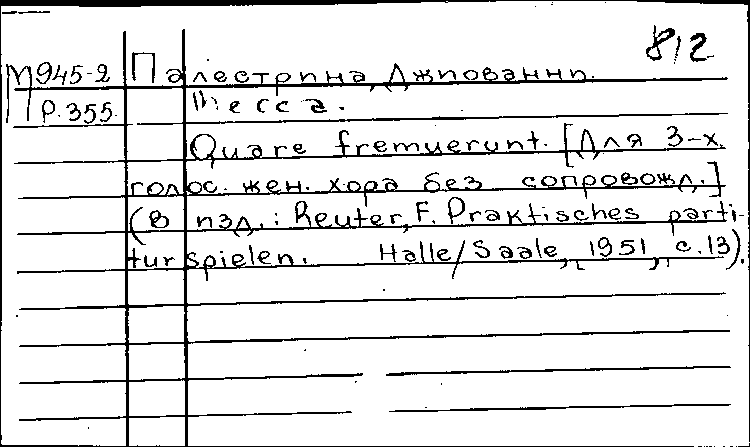 812
М945-2 Палестрина, Джиованни.
Р.355. Месса.
Quare fremuerunt. [Для 3-х
голос. жен. хора без сопровожд.]
(в изд.: Reuter, F. Praktisches parti-
turspielen. Halle/Saale, 1951, с.13).